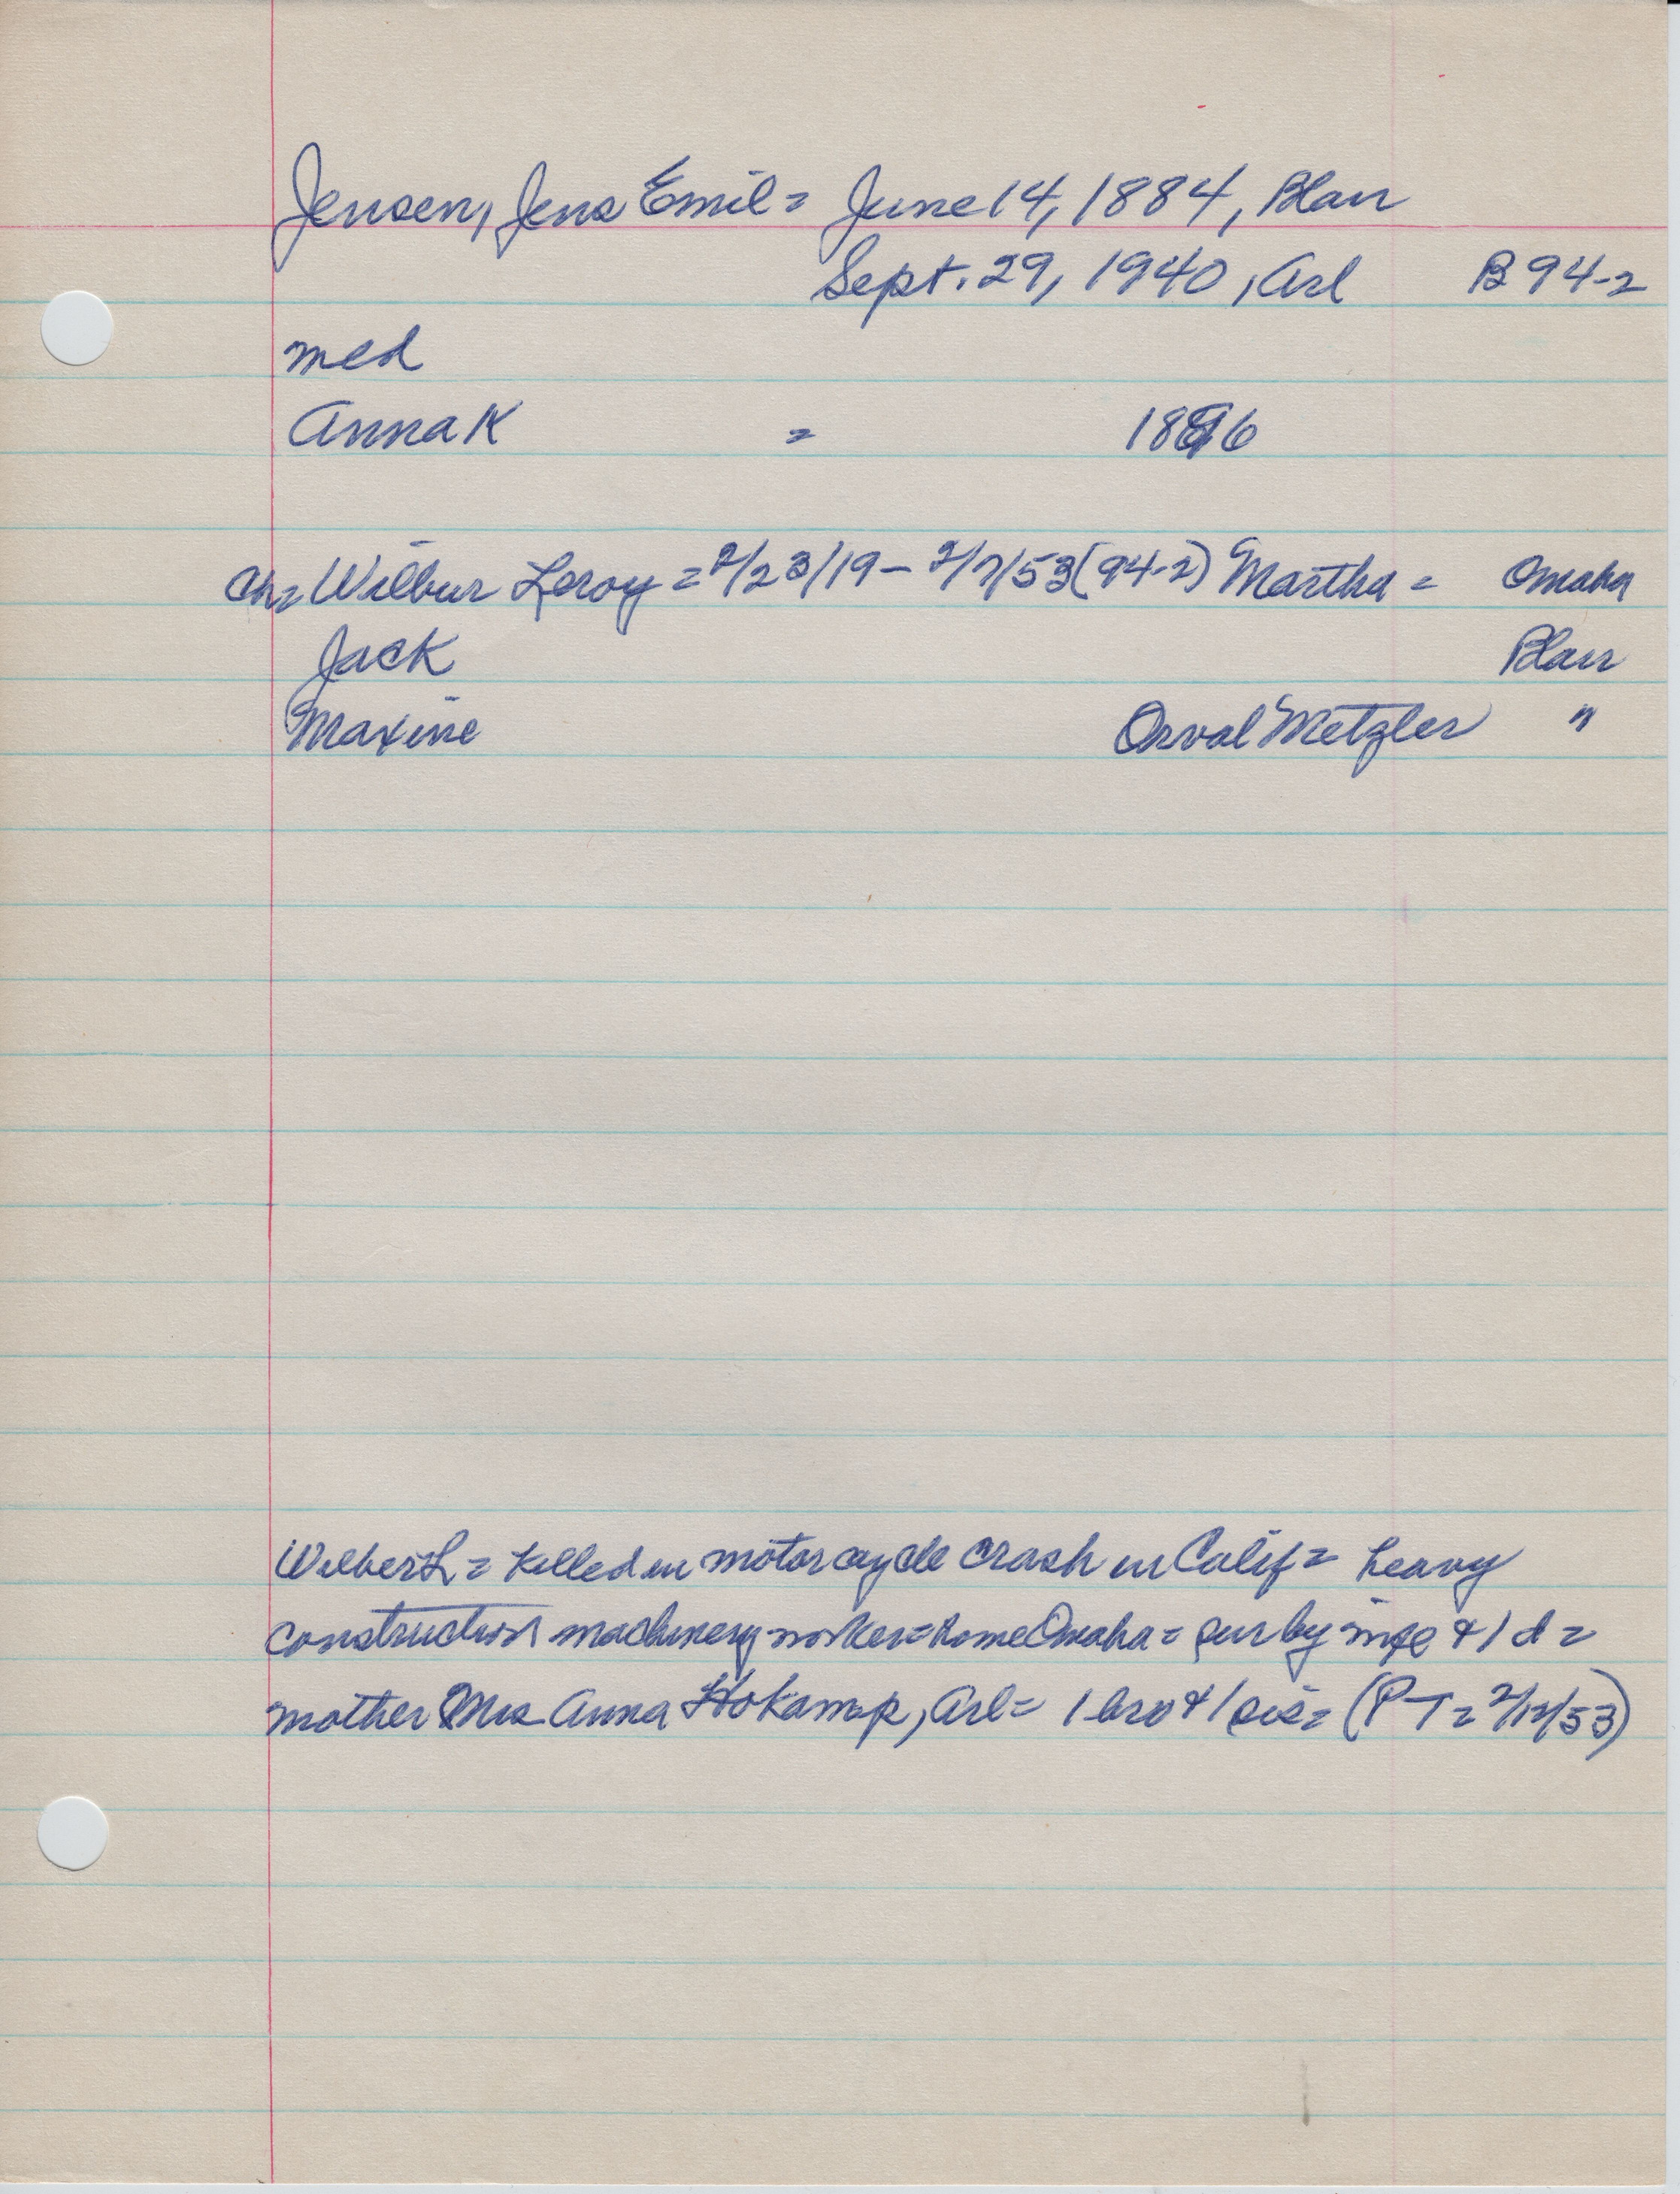 Jensen, Jens Emil = June 14, 1884, Blair
Sept. 29, 1940, Arl B 94-2
med
Anna K = 1896
Ch = Wilbur Leroy = 2/23/19 - 2/7/53 (94-2) Martha = Omaha
Jack Blair
Maxine Orval Metzler "
Wilber L = killed in motorcycle crash in Calif = heavy
construction machinery worker = home Omaha = sur by wife & 1 d =
mother Mrs Anna Hokamp, Arl = 1 bro & 1 sis = (PT = 2/12/53)